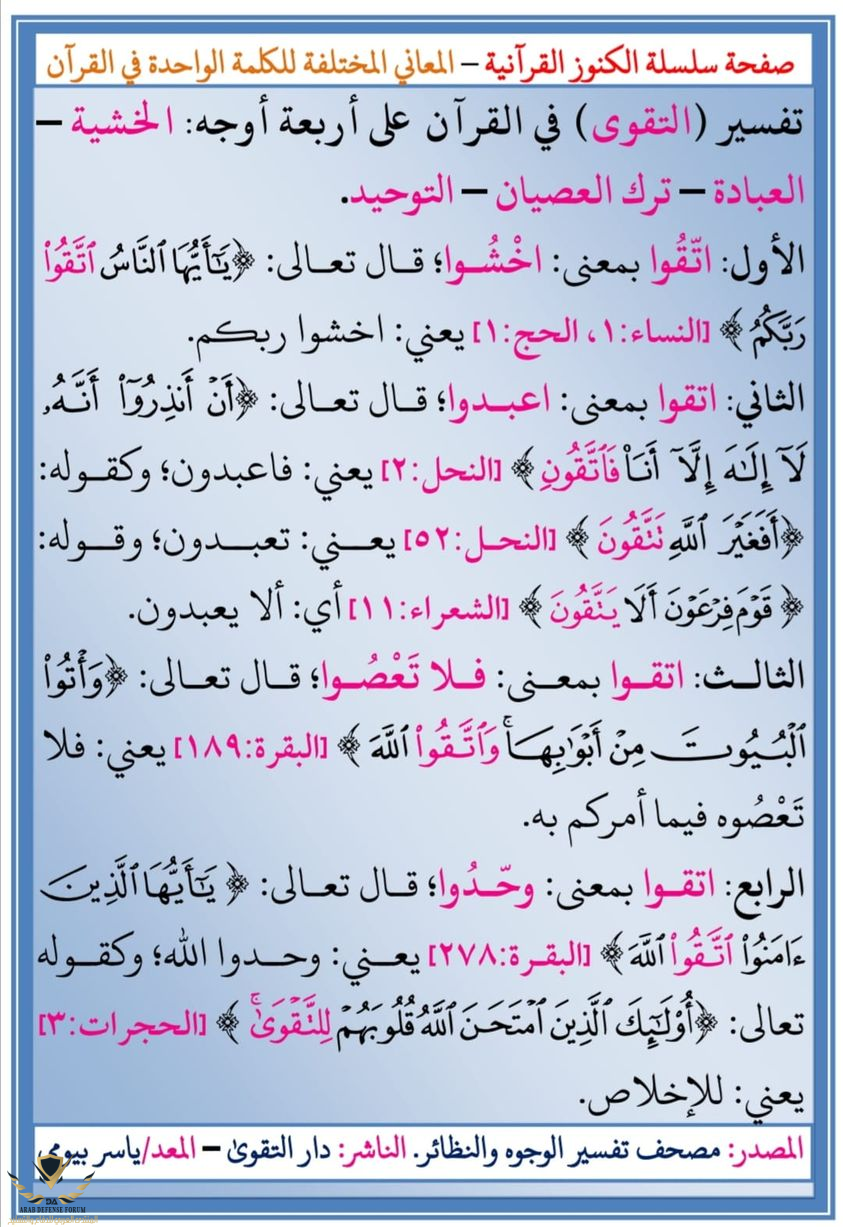 صفحة سلسلة الكنوز القرآنية – المعاني المختلفة للكلمة الواحدة في القرآن
تفسير (التقوى) في القرآن على أربعة أوجه: الخشية –
العبادة – ترك العصيان – التوحيد.
الأول: اتّقُوا بمعنى: اخْشُـوا؛ قـال تعـالى: ﴿يَٰٓأَيُّهَا ٱلنَّاسُ ٱتَّقُوا۟
رَبَّكُمُ﴾ [النساء:١، الحج:١] يعني: اخشوا ربكم.
الثاني: اتقوا بمعنى: اعبـدوا؛ قـال تعـالى: ﴿أَنۡ أَنذِرُوٓا۟ أَنَّهُۥ
لَآ إِلَٰهَ إِلَّآ أَنَا۠ فَٱتَّقُونِ﴾ [النحل:٢] يعني: فاعبدون؛ وكقـوله:
﴿أَفَغَيۡرَ ٱللَّهِ تَتَّقُونَ﴾ [النحـل:٥٢] يعـني: تعبـدون؛ وقـوله:
﴿قَوۡمَ فِرۡعَوۡنَ أَلَا يَتَّقُونَ﴾ [الشعراء:١١] أي: ألا يعبدون.
الثالـث: اتقـوا بمعـنى: فـلا تَعْصُـوا؛ قـال تعـالى: ﴿وَأۡتُوا۟
ٱلۡبُيُوتَ مِنۡ أَبۡوَٰبِهَاۚ وَٱتَّقُوا۟ ٱللَّهَ﴾ [البقرة:١٨٩] يعني: فلا
تَعْصُوه فيما أمركم به.
الرابع: اتقـوا بمعنى: وحّـدُوا؛ قـال تعـالى: ﴿يَٰٓأَيُّهَا ٱلَّذِينَ
ءَامَنُوا۟ ٱتَّقُوا۟ ٱللَّهَ﴾ [البقـرة:٢٧٨] يعـني: وحـدوا الله؛ وكقـوله
تعالى: ﴿أُو۟لَٰٓئِكَ ٱلَّذِينَ ٱمۡتَحَنَ ٱللَّهُ قُلُوبَهُمۡ لِلتَّقۡوَىٰۚ﴾ [الحجرات:٣]
يعني: للإخلاص.
المصدر: مصحف تفسير الوجوه والنظائر. الناشر: دار التقوىٰ – المعد/ياسر بيومي
ARAB DEFENSE FORUM